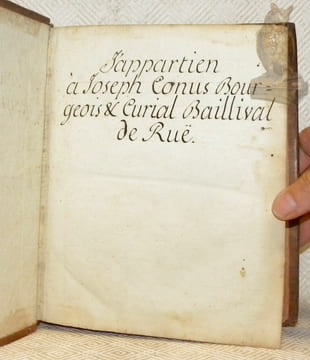 J'appartien
à Joseph Conus Bour=
geois & Curial Baillival
de Ruë.